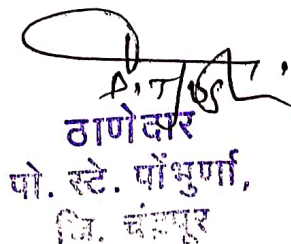 ठाणेदार
पो. स्टे. पोंभुर्णा,
जि. चंद्रपुर